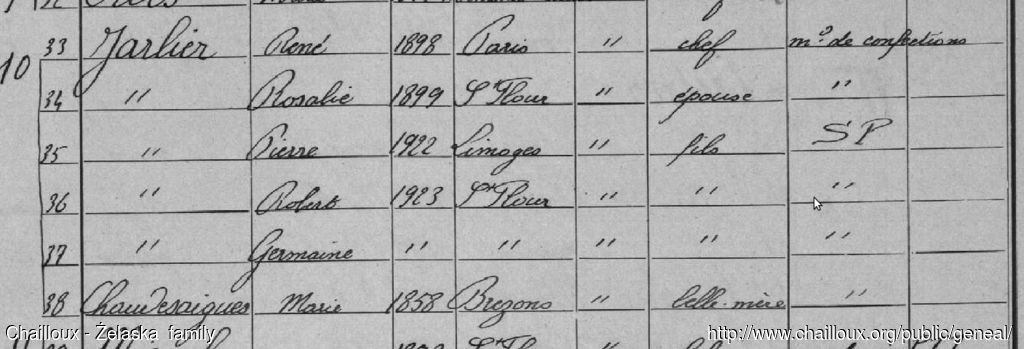 10
33 Jarlier René 1898 Paris " chef md de confections
34 " Rosalie 1899 St Flour " épouse "
35 " Pierre 1922 Limoges " fils SP
36 " Robert 1923 St Flour " " "
37 " Germaine " " " " "
38 Chaudesaigues Marie 1858 Brezons " belle-mère "
Chailloux - Želaska family
http://www.chailloux.org/public/geneal/